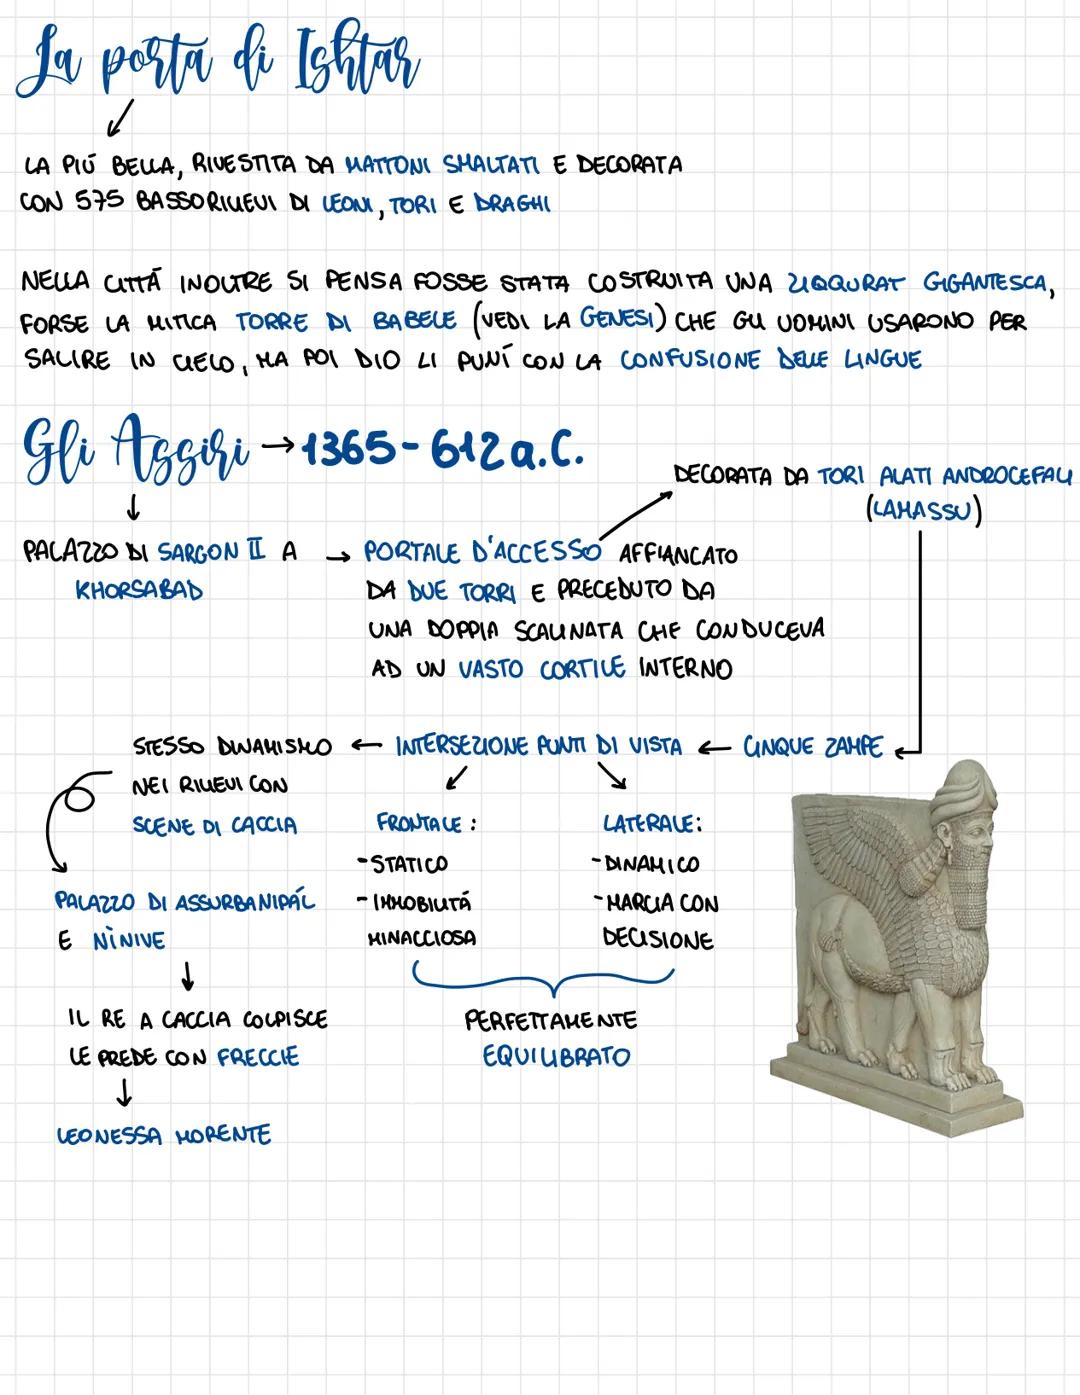 La porta di Ishtar
LA PIÚ BELLA, RIVESTITA DA MATTONI SMALTATI E DECORATA
CON 575 BASSORILIEVI DI LEONI, TORI E DRAGHI
NELLA CITTÁ INOLTRE SI PENSA FOSSE STATA COSTRUITA UNA ZIQQURAT GIGANTESCA,
FORSE LA MITICA TORRE DI BABELE (VEDI LA GENESI) CHE GLI UOMINI USARONO PER
SALIRE IN CIELO, MA POI DIO LI PUNÍ CON LA CONFUSIONE DELLE LINGUE
Gli Assiri → 1365-612 a.C.
DECORATA DA TORI ALATI ANDROCEFALI
(LAMASSU)
PALAZZO DI SARGON II A
KHORSABAD
→ PORTALE D'ACCESSO AFFIANCATO
DA DUE TORRI E PRECEDUTO DA
UNA DOPPIA SCALINATA CHE CONDUCEVA
AD UN VASTO CORTILE INTERNO
STESSO DINAMISMO ← INTERSEZIONE PUNTI DI VISTA ← CINQUE ZAMPE
NEI RILIEVI CON
SCENE DI CACCIA
FRONTALE:
- STATICO
- IMMOBILITÁ
MINACCIOSA
LATERALE:
- DINAMICO
- MARCIA CON
DECISIONE
PALAZZO DI ASSURBANIPÁL
E NÌNIVE
PERFETTAMENTE
EQUILIBRATO
IL RE A CACCIA COLPISCE
LE PREDE CON FRECCIE
LEONESSA MORENTE